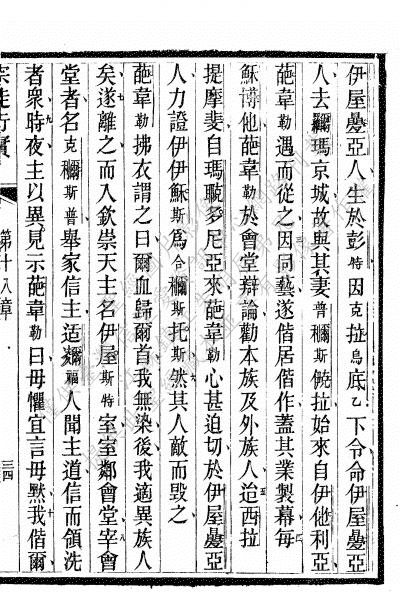 伊屋疊亞人生於彭特因克拉烏底乙下令命伊屋疊亞
人去穪瑪京城故與其妻普穪斯拉始來自伊他利亞
葩韋勒遇而從之因同藝遂偕居偕作蓋其業製幕每
穌博他葩韋勒於會堂辯論勸本族及外族人迨西拉
提摩斐自瑪多尼亞來葩韋勒心甚迫切於伊屋疊亞
人力證伊伊穌斯爲合穪斯托斯然其人敵而毀之
葩韋勒拂衣謂之曰爾血歸爾首我無染後我適異族人
矣遂離之而入欽崇天主名伊屋斯特室室鄰會堂宰會
堂者名克穪斯普舉家信主适穪福人聞主道信而領洗
者衆時夜主以異見示葩韋勒曰毋懼宜言毋默我偕爾
宗徒行實
第十八章
三四